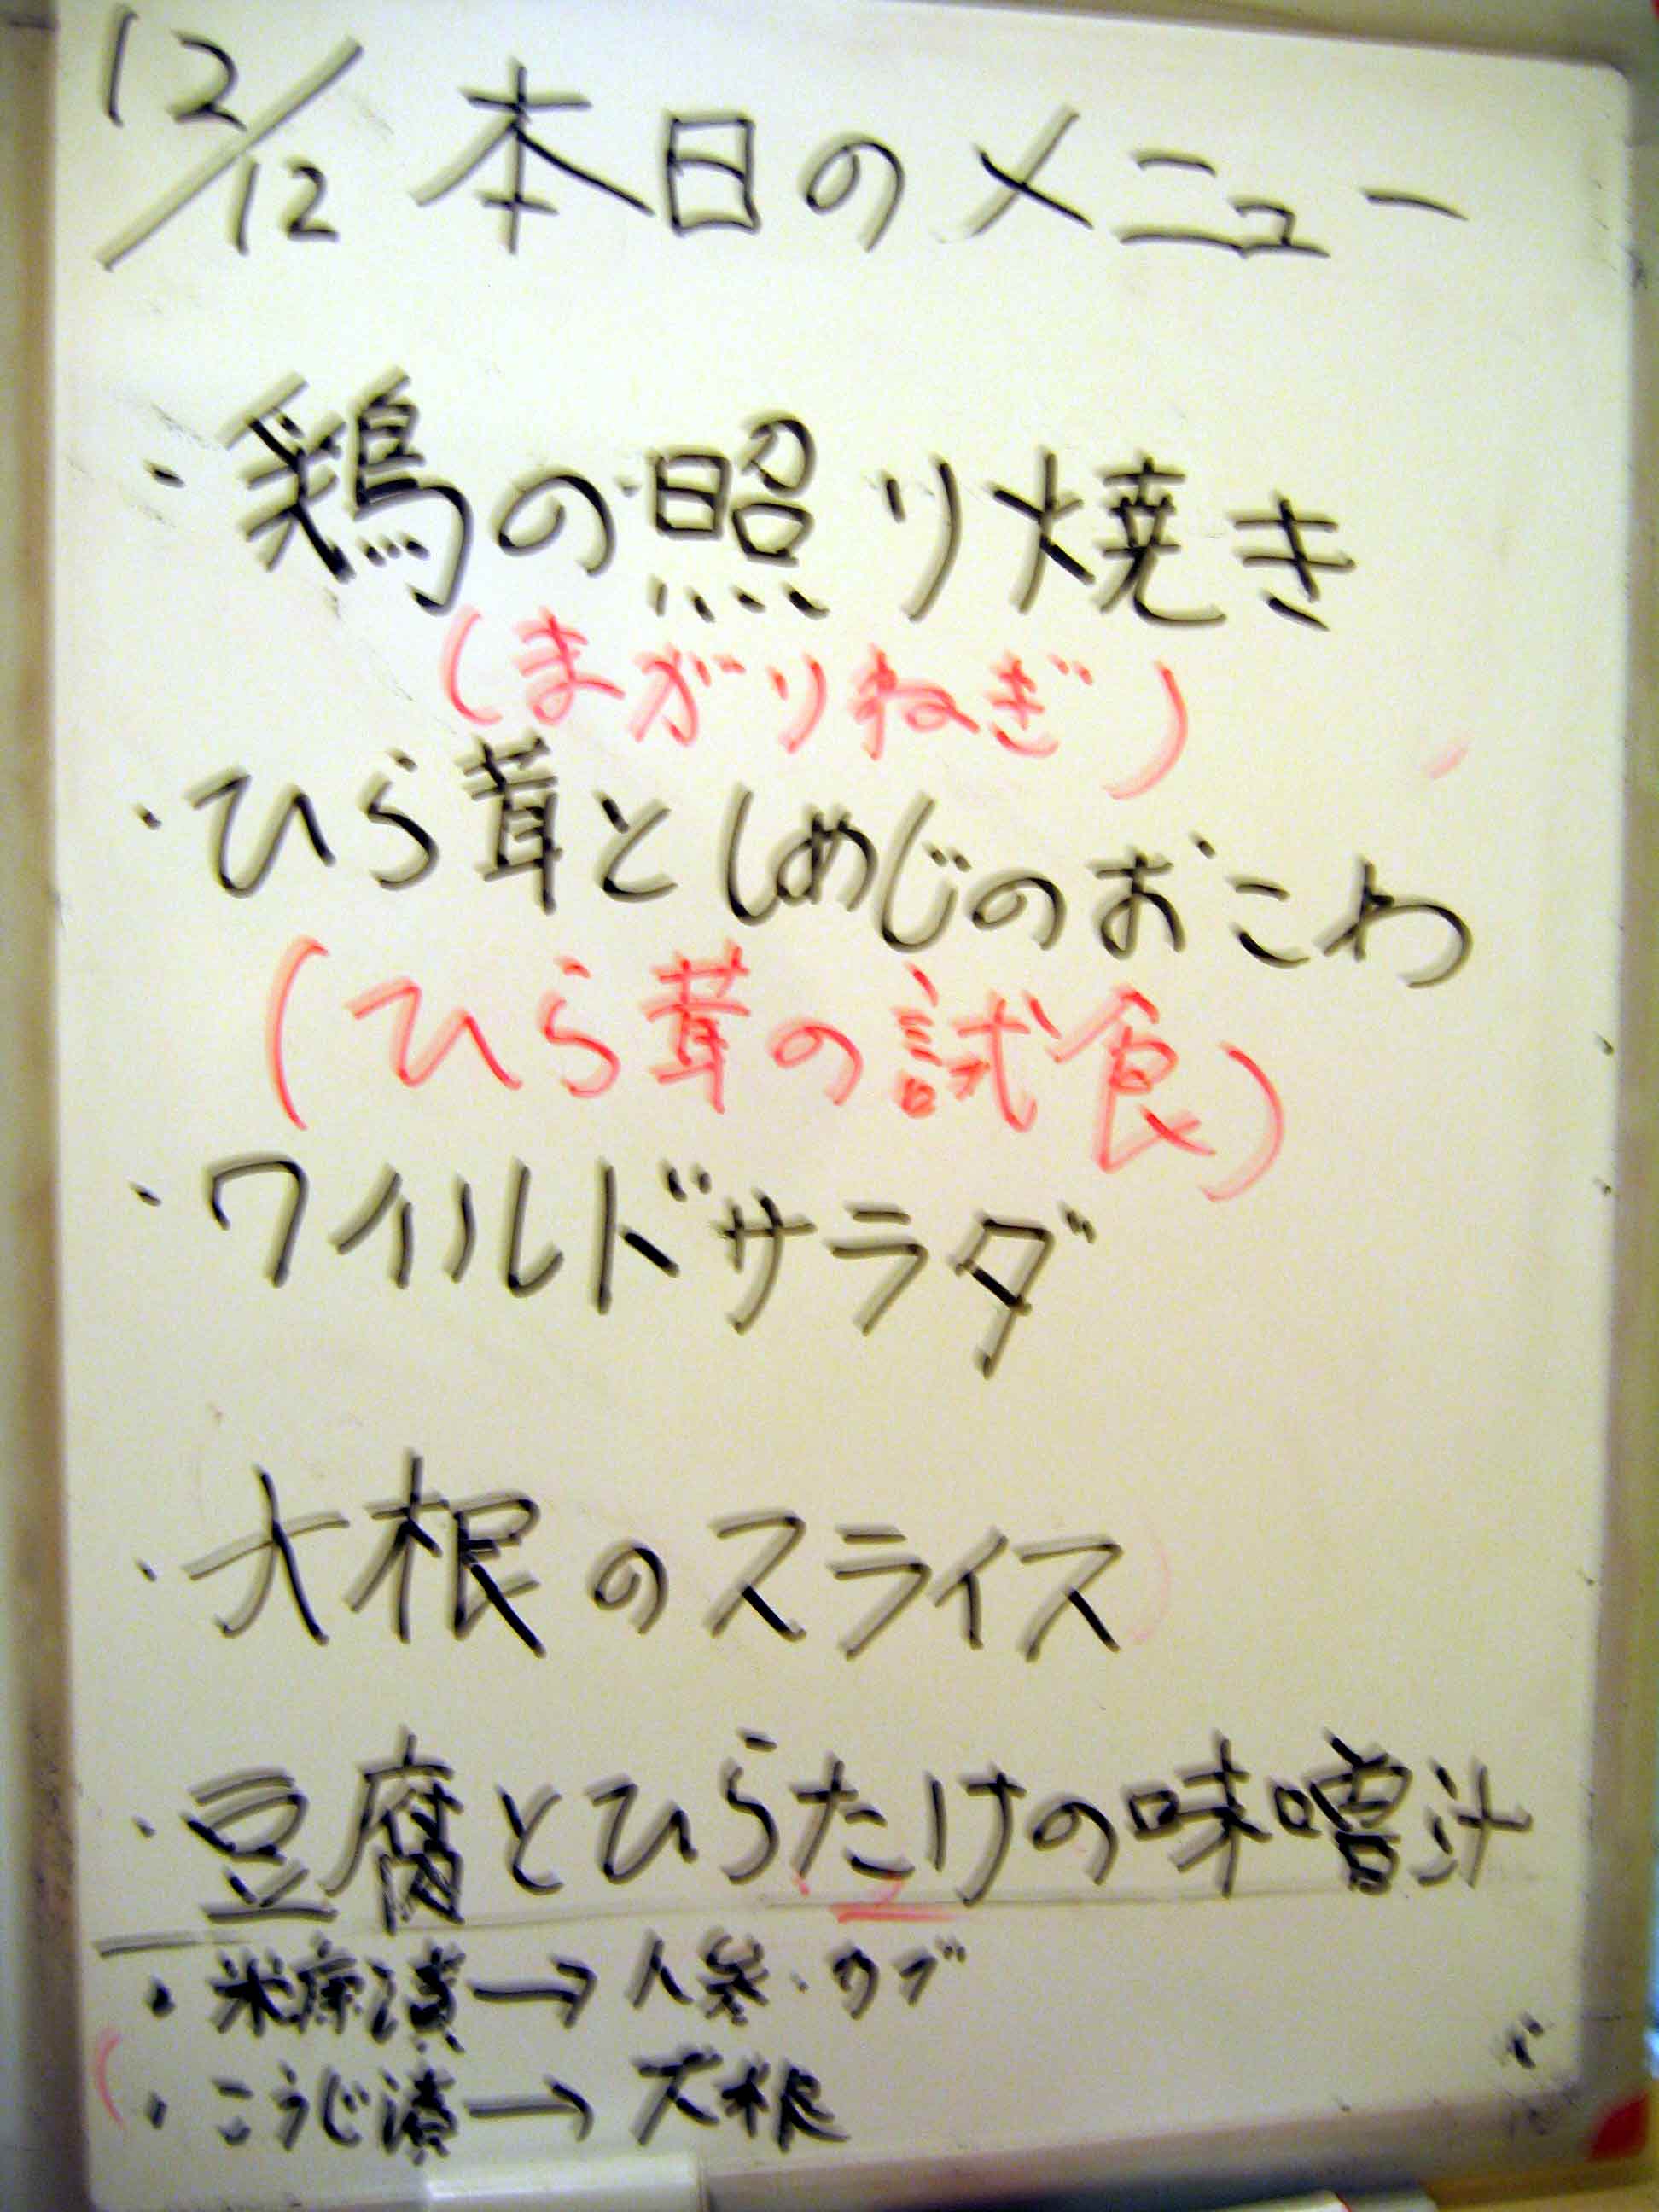 12/12 本日のメニュー
・鶏の照り焼き
(まがりねぎ)
・ひら茸としめじのおこわ
(ひら茸の試食)
・ワイルドサラダ
・大根のスライス
・豆腐とひらたけの味噌汁
・米糠漬→人参・カブ
・こうじ漬→大根